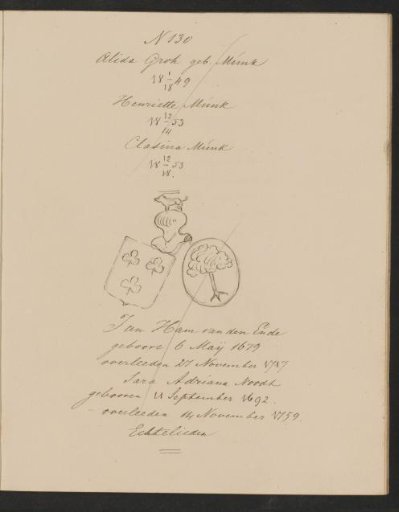 N 130
Alida Groh geb. Munk
18 1/18 49
Henriette Munk
18 12/14 53
Clasina Munk
18 12/18 53
Jan Ham van den Ende
geboore 6 Maÿ 1679
overleeden 27 November 1747
Sara Adriana Noodt
gebooren 11 September 1692
overleeden 14 November 1759
Echtelieden